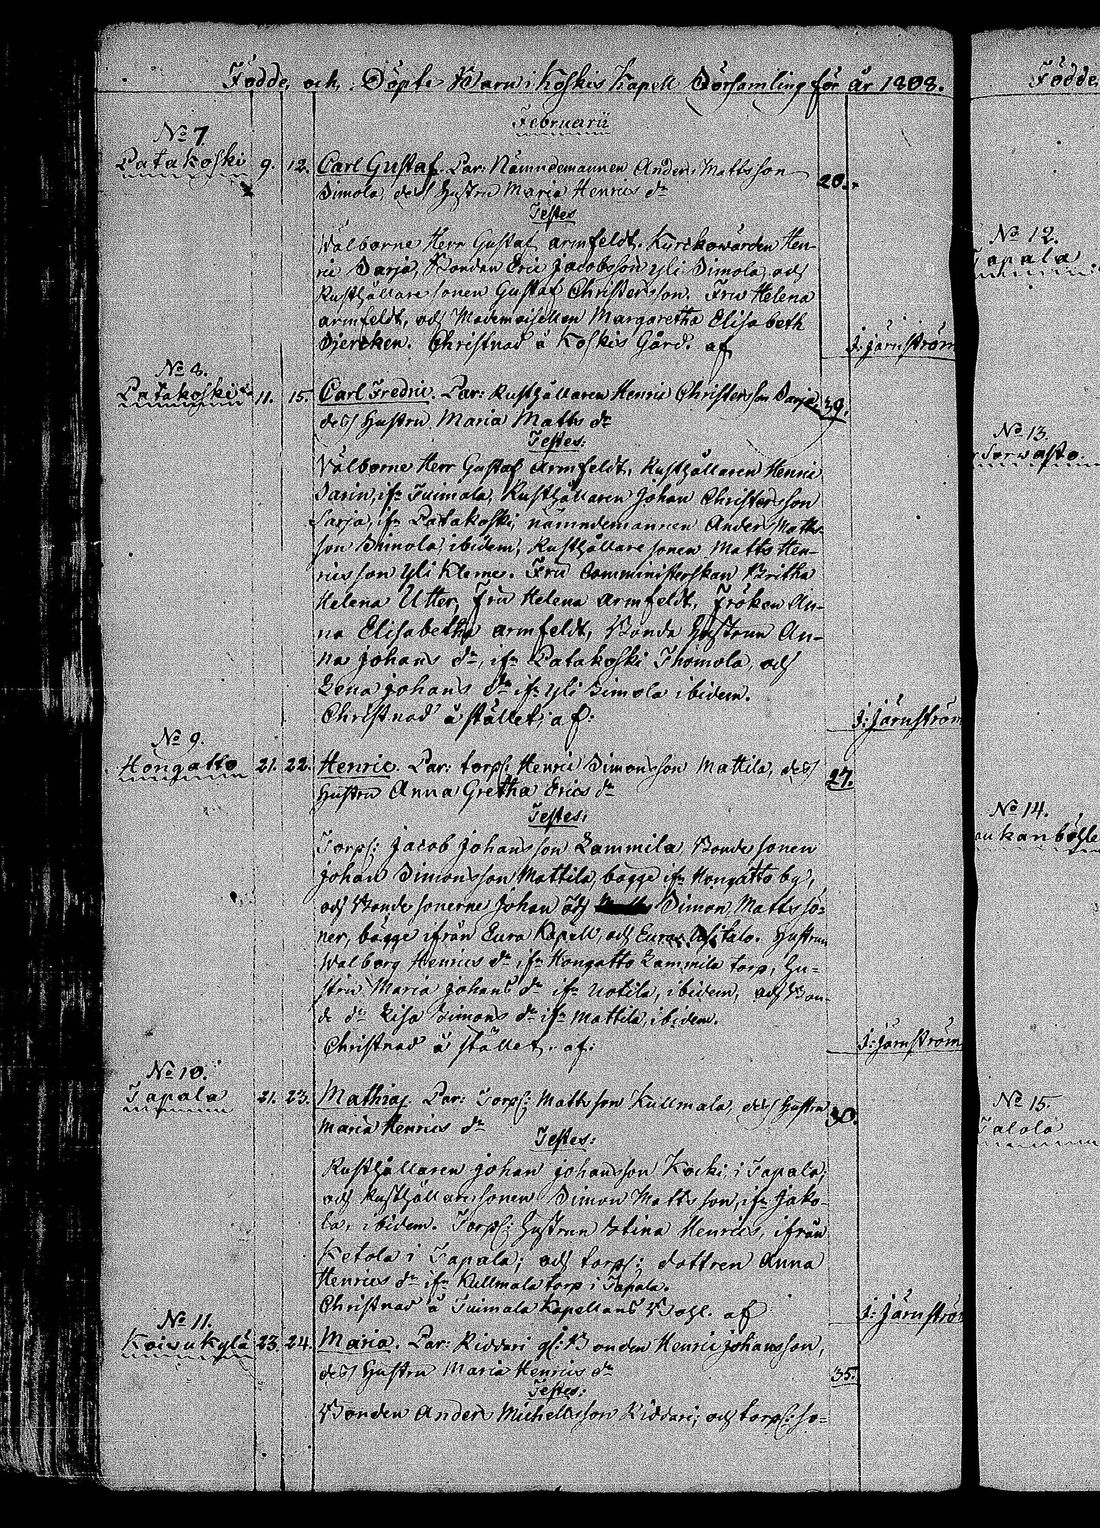 Födde, och, Döpte Barn i Koskis Kapell Församling för år 1808.
Februarii
No 7.
Patakoski 9. 12. Carl Gustaf. Par: Nämndemannen Anders Mattsson
Simola, des Hustru Maria Henrics dr 20.
Testes
Wälborne Herr Gustaf armfeldt. Kyrckowärden Hen-
ric Sarja, Bonden Eric Jacobsson Yli Simola, och
Rusthållare sonen Gustaf Christersson. Fru Helena
armfeldt, och Mademoisellen Margaretha Elisabeth
Bjercken. Christnad å Koskis Gård. af J: Järnström
No 8.
Patakoski 11. 15. Carl Fredric. Par: Rusthållaren Henric Christersson Sarja 39.
des Hustru Maria Matts dr
Testes:
Wälborne Herr Gustaf Armfeldt, Rusthållaren Henric
Sarin, ifr Tuimala, Rusthållaren Johan Christersson
Sarja, ifr Patakoski, nämndemannen Anders Matts-
son Simola, ibidem, Rusthållare sonen Matts Hen-
ricsson Yli Kleme. Fru Comministerskan Britha
Helena Utter, Fru Helena armfeldt, Fröken An-
na Elisabetha armfeldt, Bonde Hustrun An-
na Johans dr, ifr Patakoski Thomola, och
Lena Johans dr ifr Yli Simola ibidem.
Christnad å stället, af: J: Järnström
No 9.
Hongatto 21. 22. Henric. Par: torp: Henric Simonsson Mattila, des 27.
Hustru Anna Gretha Erics dr
Testes:
Torp: Jacob Johansson Lammila, Bonde sonen
Johan Simonsson Mattila, bägge ifr Hongatto by,
och Bonde sönerne Johan och Simon Mattssö-
ner, bägge ifrån Eura Kapell, och Eura. Hustrun
Walborg Henrics dr ifr Hongatto Lammila torp, Hu-
stru Maria Johans dr ifr Uotila, ibidem, och Bon-
de dr Lisa Simons dr ifr Mattila, ibidem.
Christnad å stället. af: J: Järnström
No 10.
Tapala 21. 23. Mathias. Par: Torp: Mattsson Kullmala, des Hustru 30.
Maria Henrics dr
Testes:
Rusthållaren Johan Johansson Kocki i Tapala,
och Rusthållaresonen Simon Mattsson, ifr Jako-
la, ibidem. Torp: Hustrun Stina Henrics, ifrån
Ketola i Tapala; och torp: dottren Anna
Henrics dr ifr Kullmala torp i Tapala.
Christnad å Tuimala Kapellans Bohl. af J: Järnströ
No 11.
Koivukylä 23. 24. Maria. Par: Riddari gl: Bonden Henric Johansson,
des Hustru Maria Henrics dr 35.
Testes:
Bonden Anders Michelsson Riddari, och torp: so-
Födde,
No 12.
Tapala
No 13.
Sorvasto.
No 14.
aukanböhle
No 15.
Talola